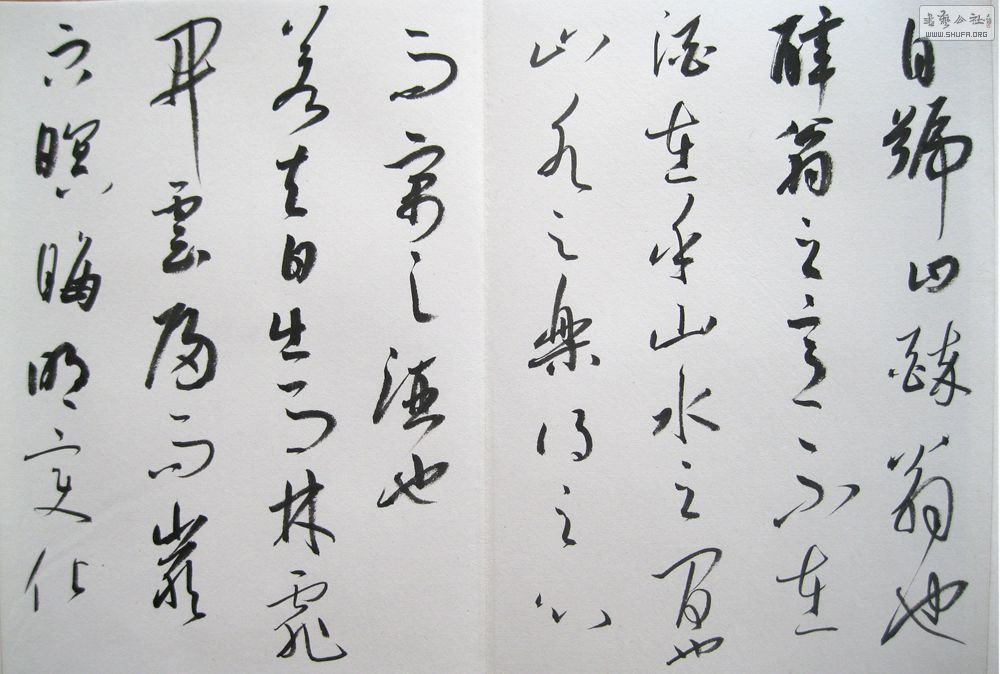 自號曰醉翁也
醉翁之意不在
酒在乎山水之間也
山水之樂得之心
而寓之酒也
若夫日出而林霏
開雲歸而巖
穴暝晦明變化
書藝公社
WWW.SHUFA.ORG